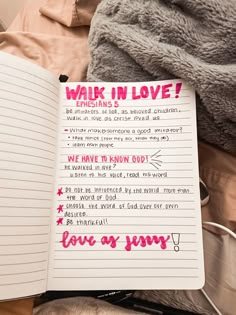 WALK IN LOVE!
EPHESIANS 5
Be imitators of God, as beloved children
walk in love as christ loved us.
→ What makes someone a good imitator?
↳ study them/know they them
↳ learn from people
WE HAVE TO KNOW GOD!
He walked in love?
listen to his voice, read his word
★ Do not be influenced by the world more than
the word of God
★ choose the word of God over our own
desires.
★ Be thankful!
love as jesus!